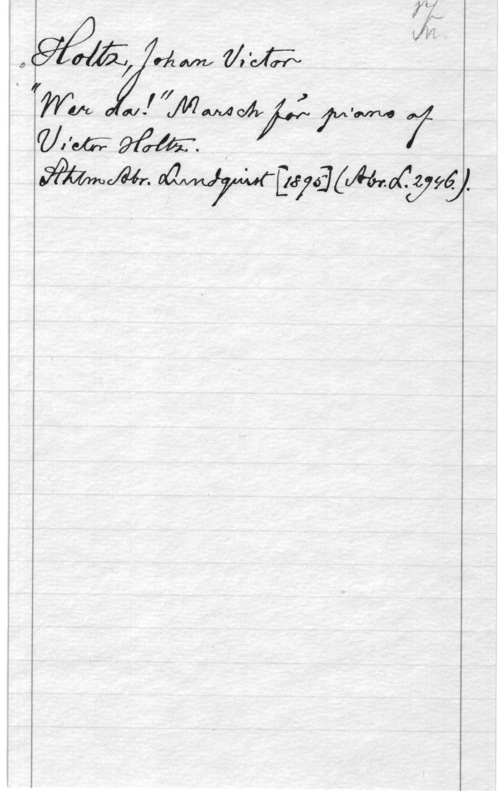 Holtz, Johan Victor
"Wer da!" Marsch för piano af
Victor Holtz.
Sthlm Abr. Lundquist [1895] (Abr.L. 2946.).